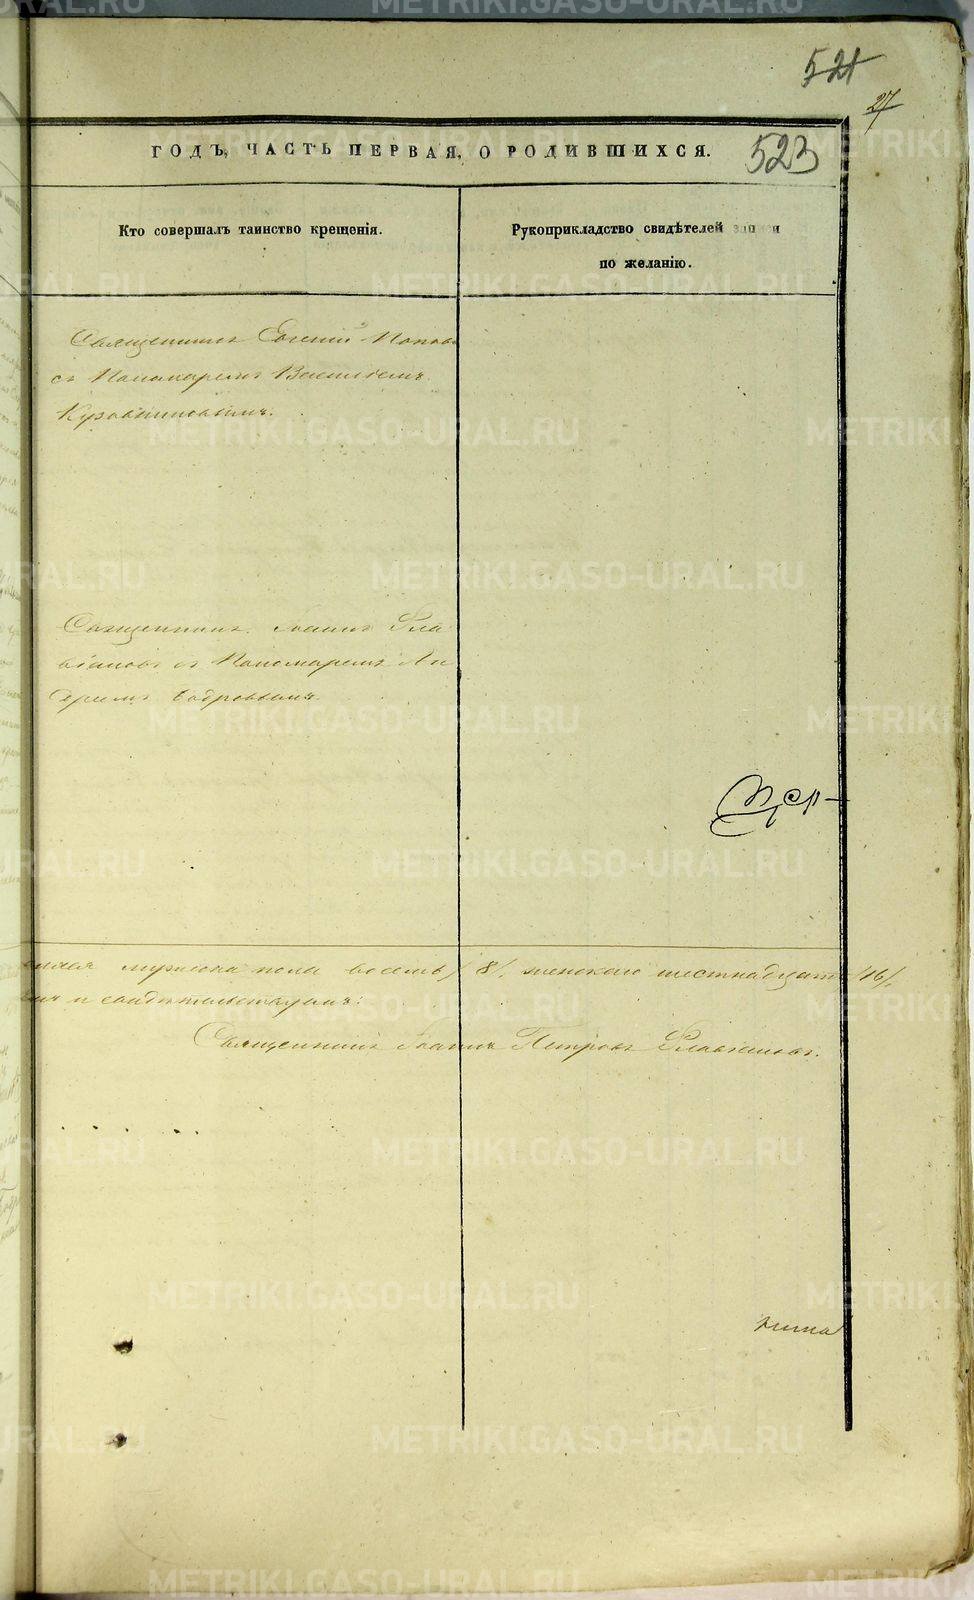 521
27
ГОДЪ, ЧАСТЬ ПЕРВАЯ, О РОДИВШИХСЯ.
523
Кто совершалъ таинство крещенія.
Рукоприкладство свидѣтелей записи
по желанію.
Священникъ Евгеній Поповъ
съ Пономаремъ Василіемъ
Священникъ Іоаннъ Фла
віановъ съ Пономаремъ Ан
дреемъ Бобровымъ.
мужеска пола восемь /8/. женскаго шестнадцать /16/.
и свидѣтельствуемъ:
Священникъ Іоаннъ Петровъ Флавіановъ.
METRIKI.GASO-URAL.RU